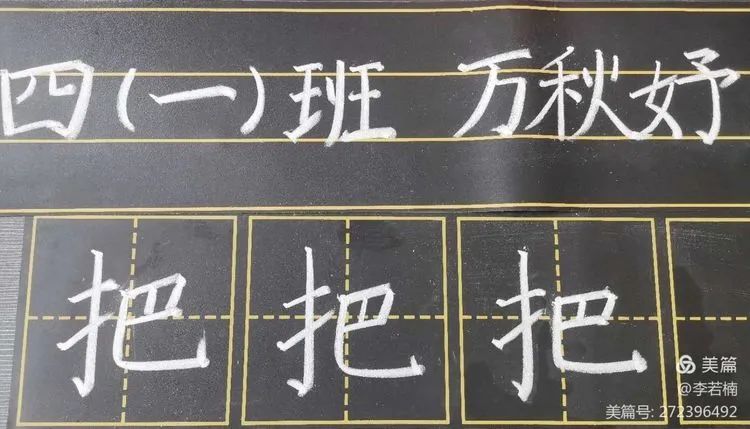 四(一)班 万秋妤
把 把 把
美篇
@李若楠
美篇号: 272396492